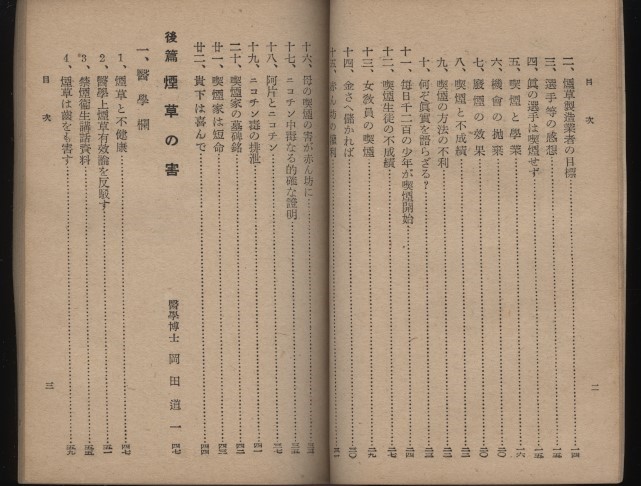 目次
二、煙草製造業者の目標 一四
三、選手等の感想
四、眞の選手は喫煙せず 一五
五、喫煙と學業 一六
六、機會の抛棄 二〇
七、嚴煙の效果 二〇
八、喫煙と不成績
九、喫煙の方法の不利
十、何ぞ眞實を語らざる?
十一、每日千二百の少年が喫煙開始
十二、喫煙生徒の不成績 二七
十三、女敎員の喫煙 二九
十四、金さへ儲かれば 三〇
十五、赤ん坊の
二
十六、母の喫煙の害が赤ん坊に
十七、ニコチン中毒なる的確な證明
十八、阿片とニコチン
十九、ニコチン毒の排泄 四一
二十、喫煙家の墓碑銘 四二
廿一、喫煙家は短命 四三
廿二、貴下は喜んで 四四
後篇 煙草の害 醫學博士 岡田道一 四七
一、醫學欄
1、煙草と不健康 四七
2、醫學上煙草有效論を反駁す
3、禁煙衞生講話資料
4、煙草は齒をも害す
目次
三